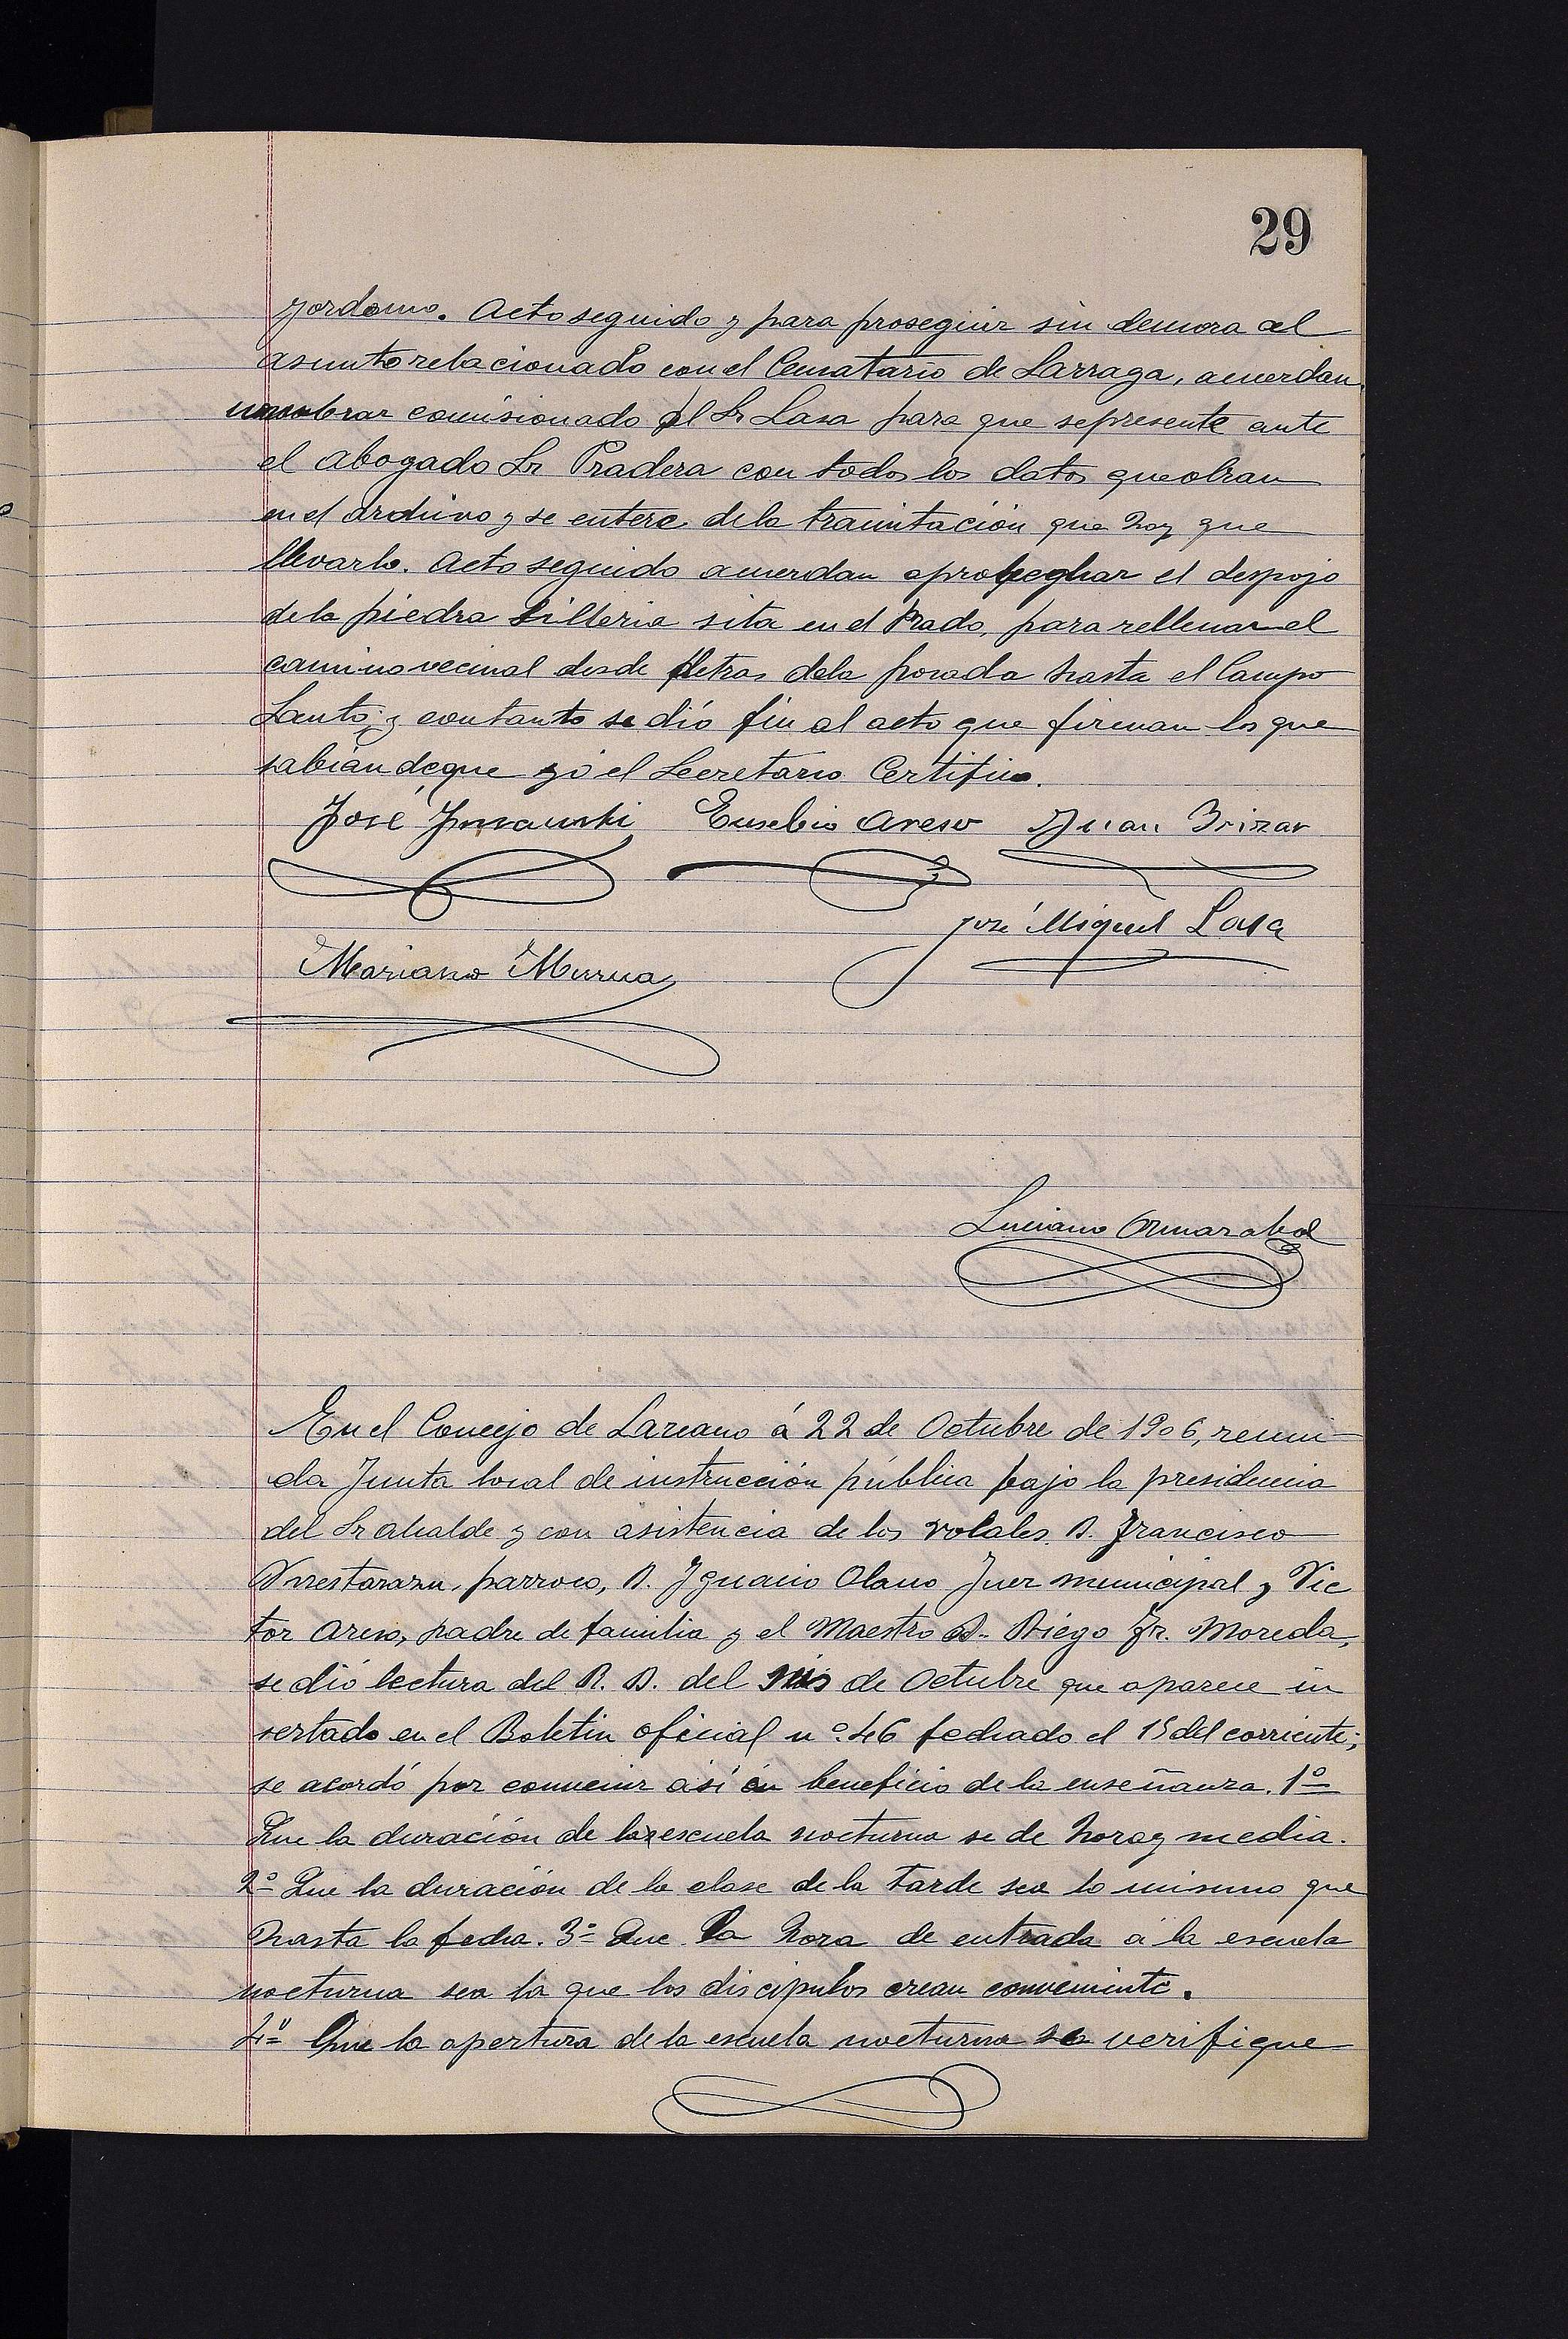 29
yordomo. Acto seguido y para proseguir sin demora al
asunto relacionado con el Cematario de Larraga, acuerdan
nombrar comisionado al Sr Lasa para que se presente ante
el abogado Sr Pradera con todos los datos que obran
en el archivo y se entere de la tramitación que hay que
llevarlo. Acto seguido acuerdan aprobechar el despojo
de la piedra silleria sita en el Prado, para rellenar el
camino vecinal desde detras de la posada hasta el Campo
Santo; y con tanto se dió fin al acto que firman los que
sabian de que yo el Secretario Certifico.
José Eusebio Areso Juan Irizar
José Miguel Lasa
Mariano Murua
Luciano Ormazabal
En el Concejo de Lazcano á 22 de Octubre de 1906, reuni-
da Junta local de instrucción pública bajo la presidencia
del Sr alcalde y con asistencia de los volales D. Francisco
Urrestarazu, parroco, D. Ygnacio Olano Juez municipal y Vic
tor Areso, padre de familia y el Maestro D. Diego Fr. Moreda,
se dió lectura del R. D. del seis de Octubre que aparece in
sertado en el Boletin oficial nº 46 fechado el 15 del corriente;
se acordó por convenir así en beneficio de la enseñanza. 1º
Que la duración de la escuela nocturna se de hora y media.
2º Que la duración de la clase de la tarde sea lo mismo que
hasta la fecha. 3º Que la hora de entrada a la escuela
nocturna sea la que los discipulos crean conveniente.
4º Que la apertura de la escuela nocturna se verifique